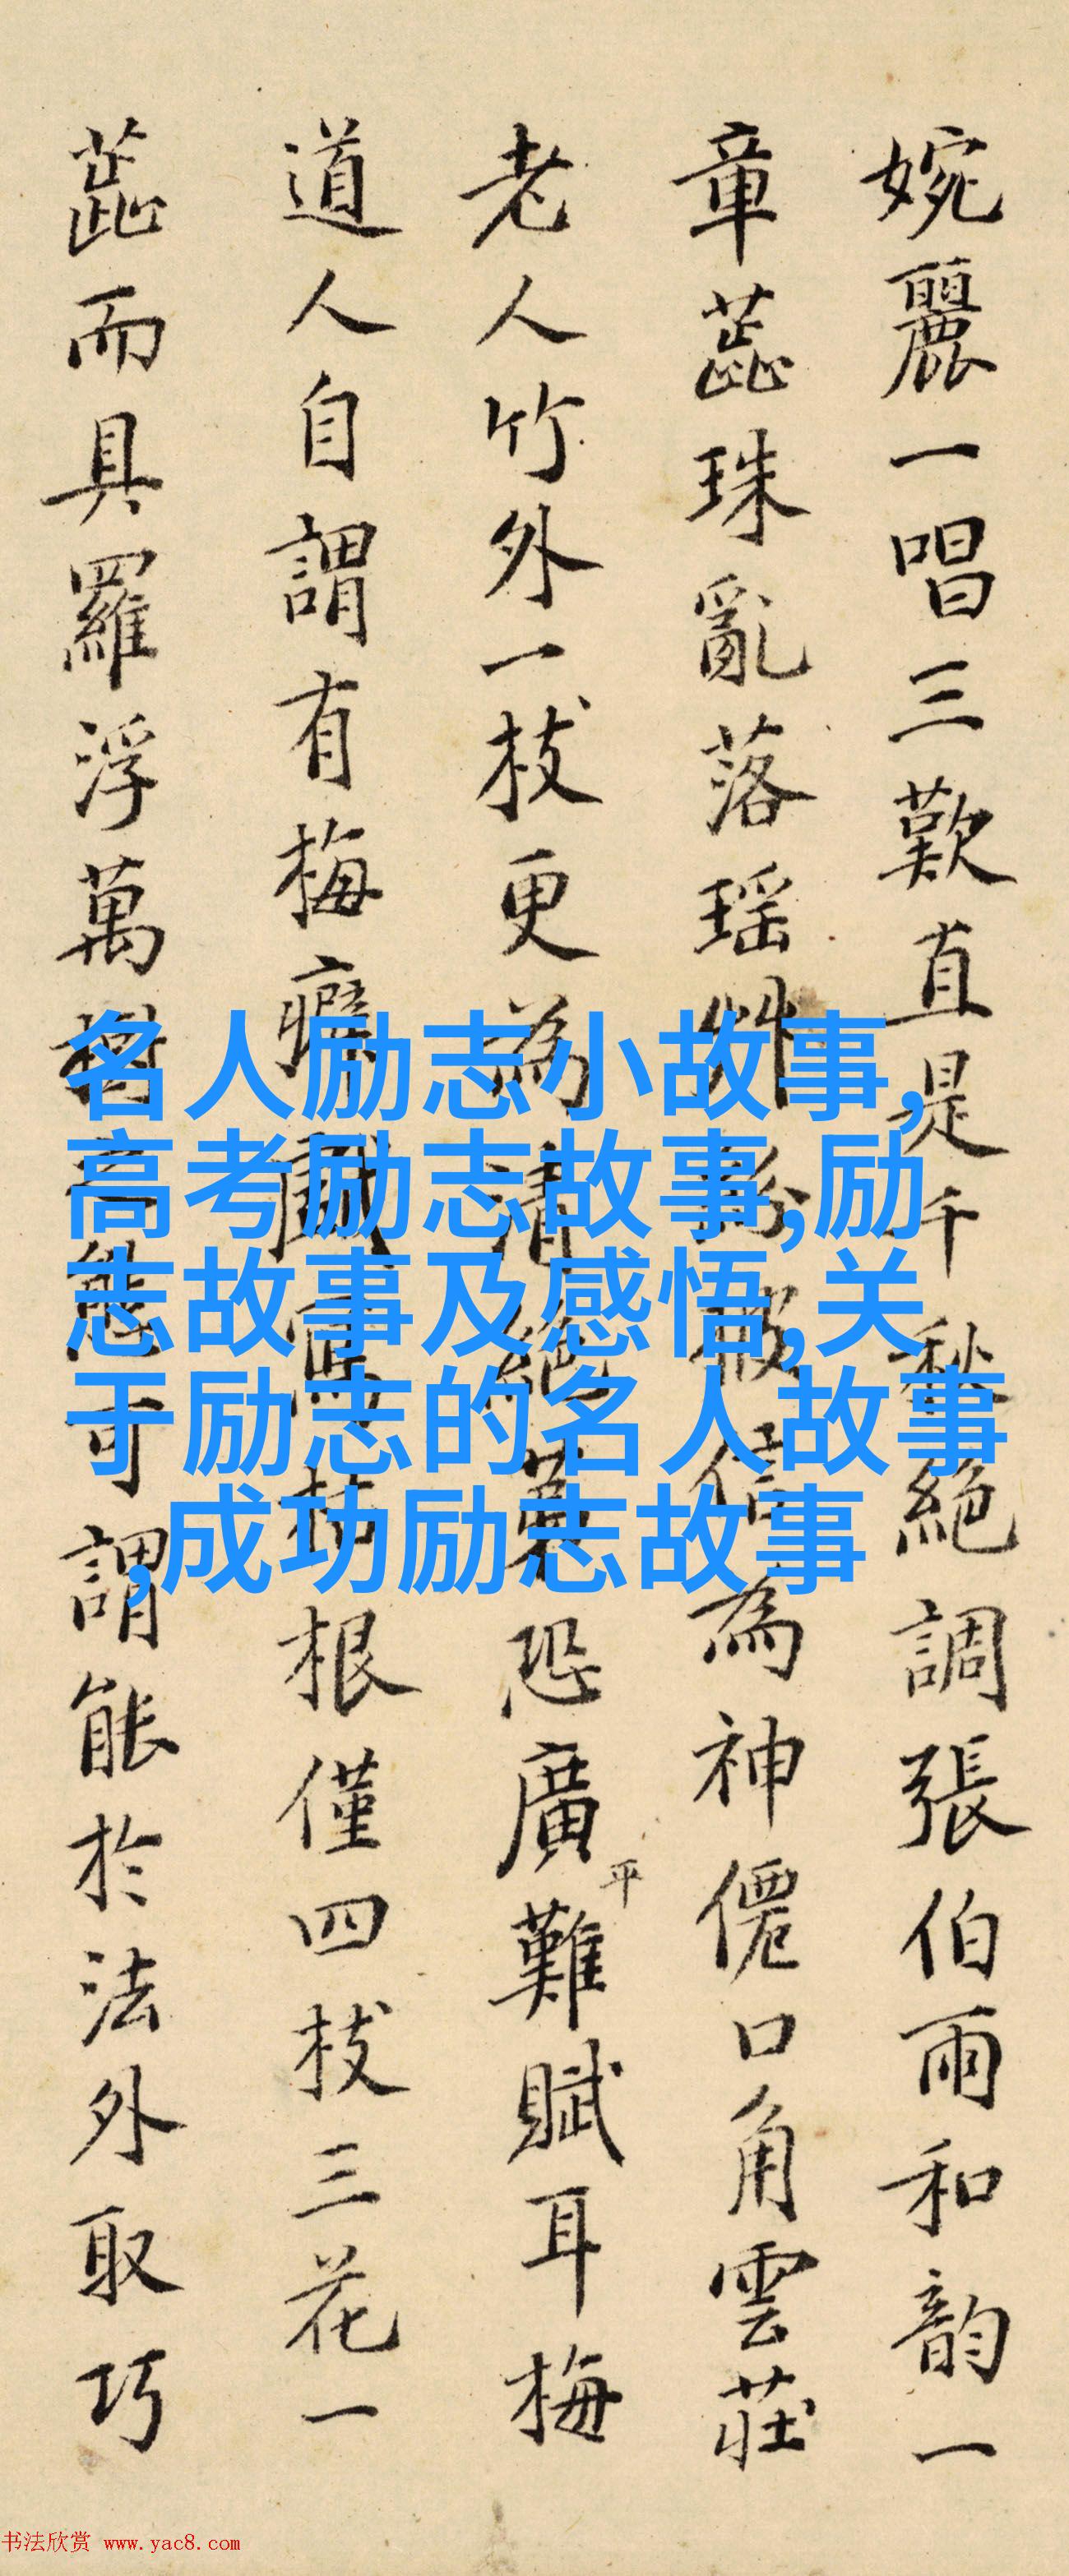 婉麗一唱三歎直是千秋絕調張伯雨和韵一
章蕋珠亂落瑶艸紛披信為神僊口角雲莊
老人竹外一枝更為清絕第恐廣平難賦耳梅
道人自謂有梅癖圖枯根僅四枝三花一
蕋而具羅浮萬樹態可謂能於法外取巧
名人励志小故事,
高考励志故事,励
志故事及感悟,关
于励志的名人故事
,成功励志故事
书法欣赏 www.yac8.com